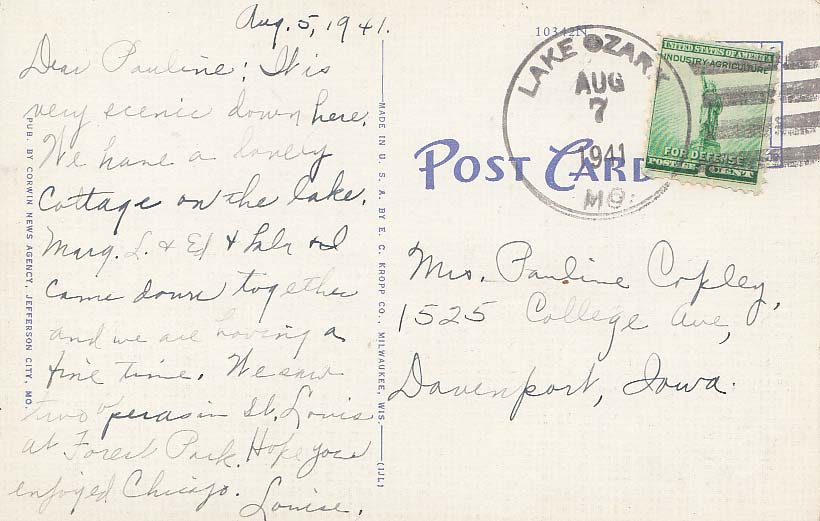 Aug. 5, 1941.
Dear Pauline: It is
very scenic down here.
We have a lovely
Cottage on the lake.
Marg. L. & Ed & & I
came down together
and we are having a
fine time. We saw
two operas in St. Louis
at Forest Park. Hope you
enjoyed Chicago. Louise.
PUB. BY CORWIN NEWS AGENCY, JEFFERSON CITY, MO.
MADE IN U. S. A. BY E. C. KROPP CO., MILWAUKEE, WIS.
(IJL)
10342N
POST CARD
LAKE OZARK
AUG
7
1941
MO.
UNITED STATES OF AMERICA
INDUSTRY·AGRICULTURE
FOR DEFENSE
POSTAGE CENT
Mrs. Pauline Copley,
1525 College Ave,
Davenport, Iowa.